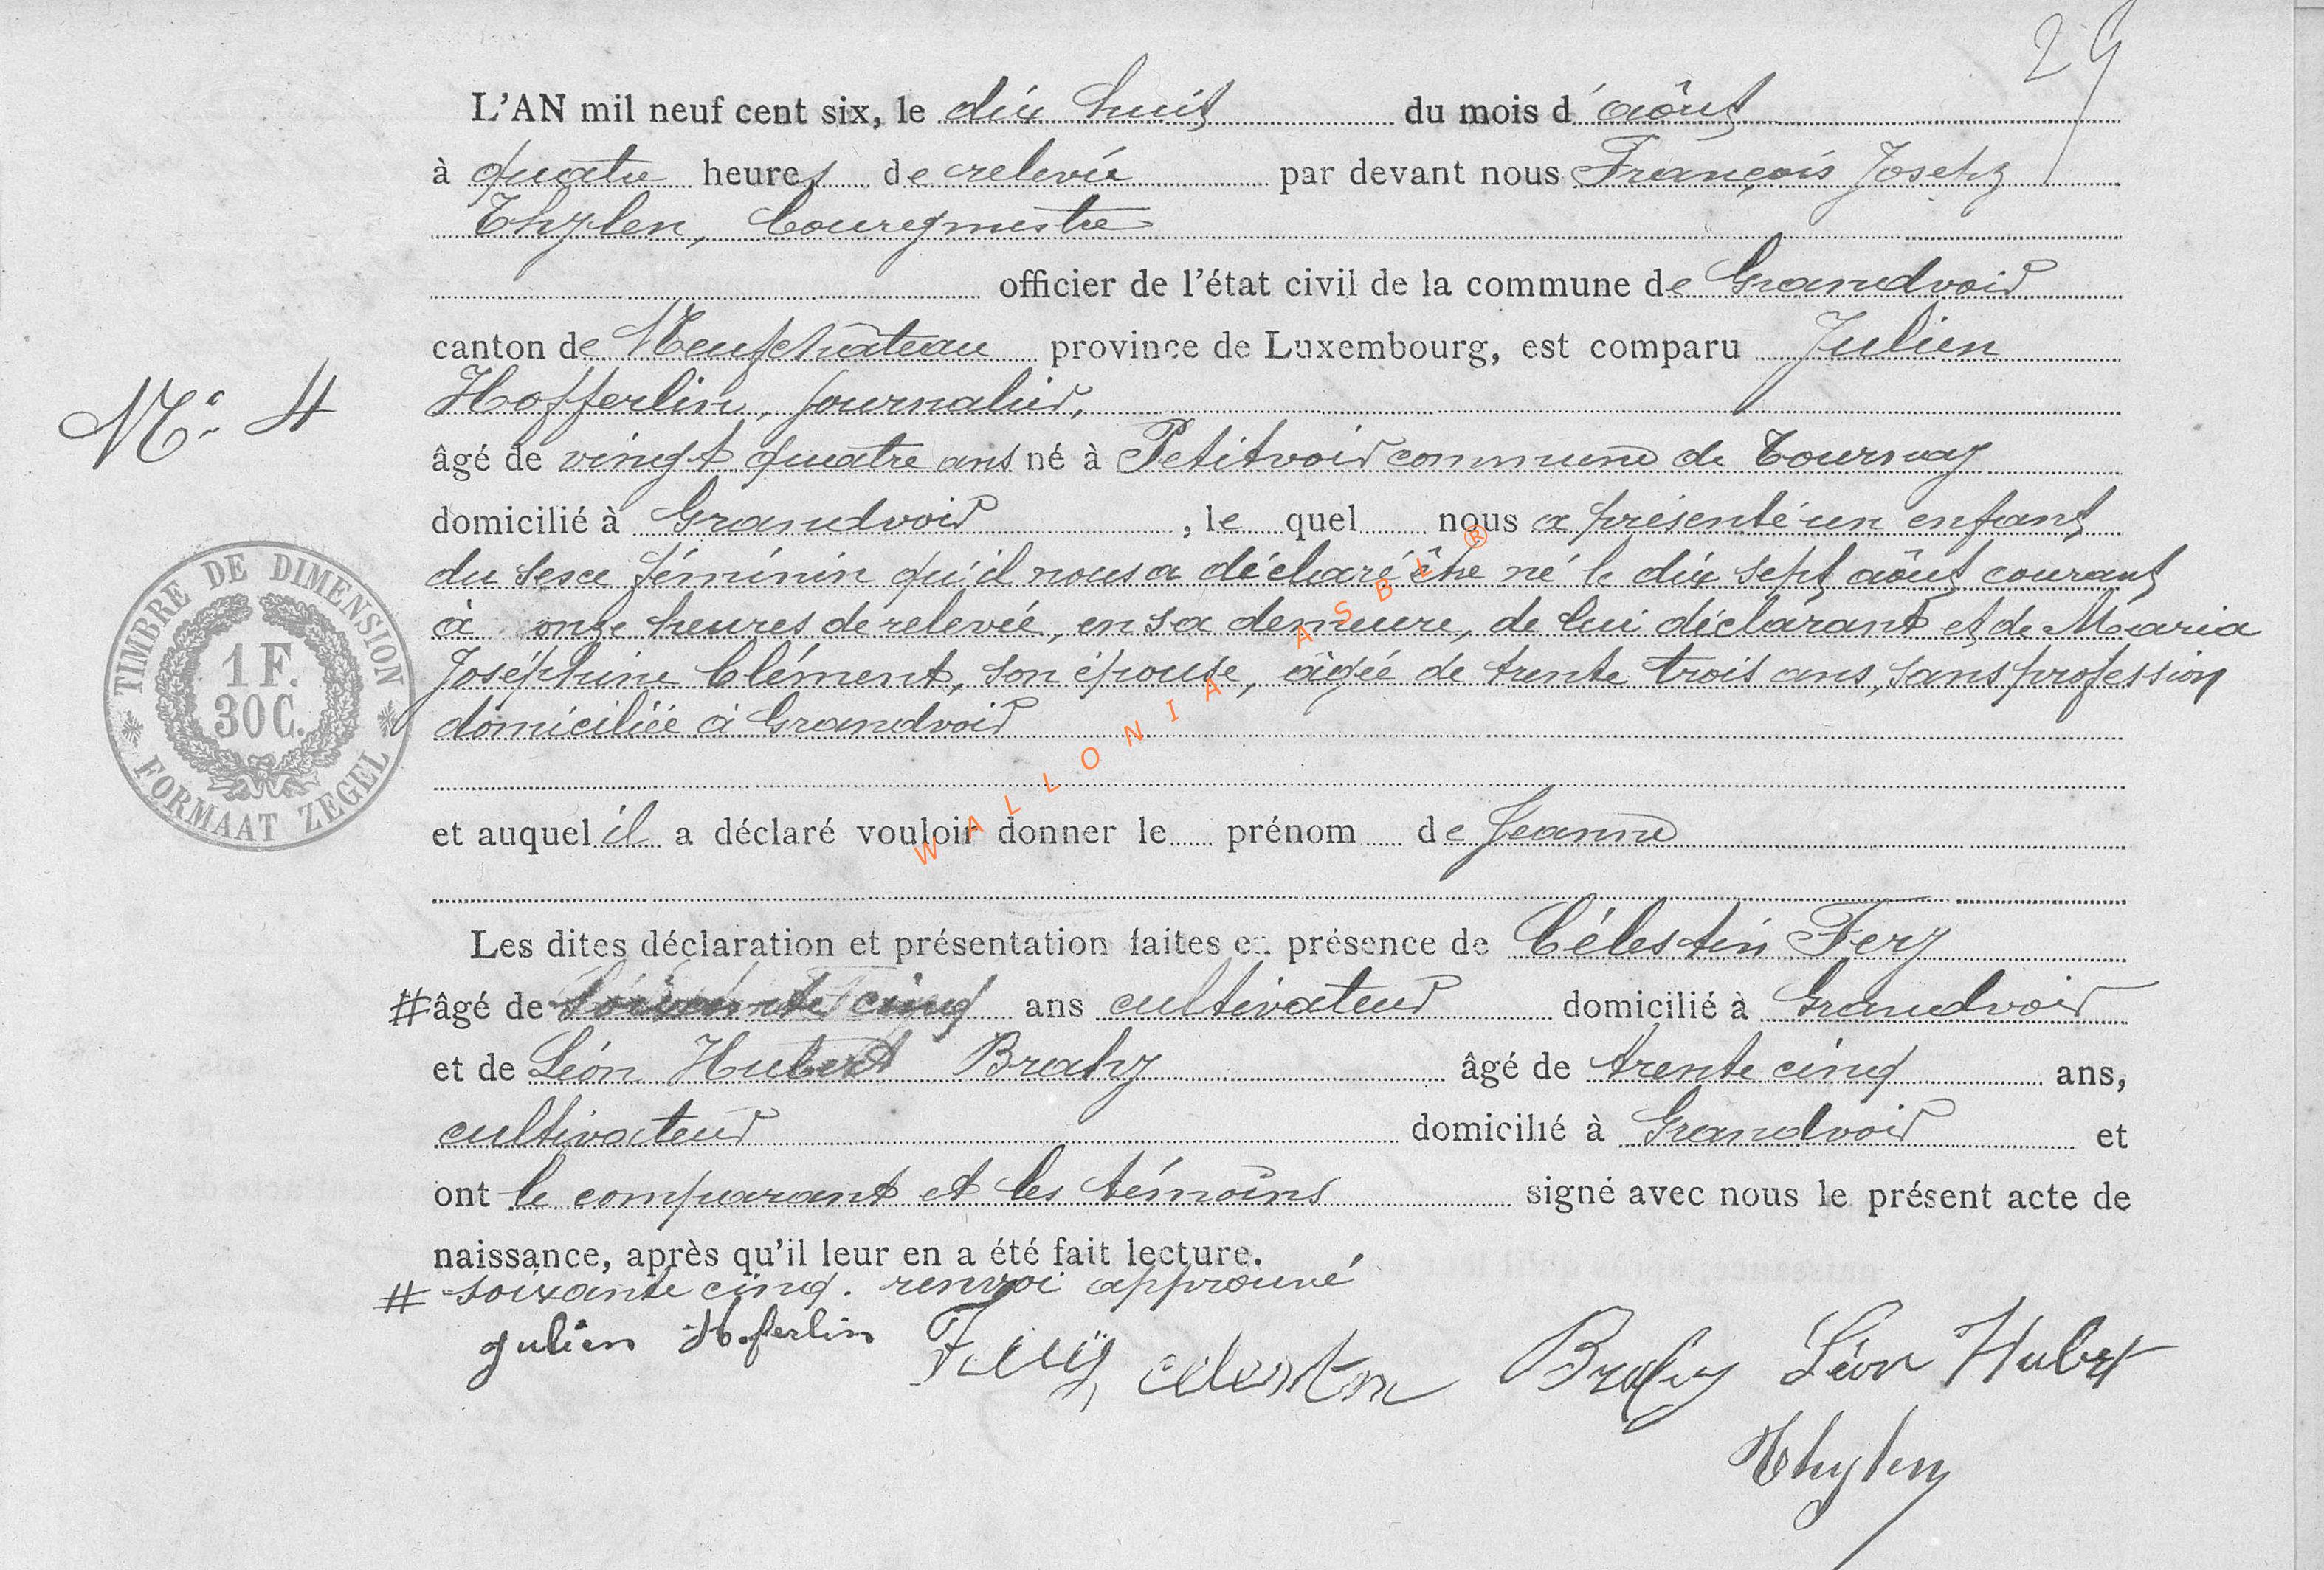 29
L'AN mil neuf cent six, le dix huit du mois d'aôut
à quatre heures de relevée par devant nous François Joseph
Thylen, bourgmestre
officier de l'état civil de la commune de Grandvoir
canton de Neufchâteau province de Luxembourg, est comparu Julien
Hofferlin, journalier,
N° 4
âgé de vingt quatre ans né à Petitvoir commune de Tournay
domicilié à Grandvoir, le quel nous a présenté un enfant
du sexe féminin qu'il nous a déclaré être né le dix sept aôut courant
à onze heures de relevée, en sa demeure, de lui déclarant et de Maria
Joséphine Clément, son épouse, âgée de trente trois ans, sans profession
domiciliée à Grandvoir
TIMBRE DE DIMENSION
1 F.
30 C.
FORMAAT ZEGEL
WALLONIA ASBL ®
et auquel il a déclaré vouloir donner le prénom de Jeanne
Les dites déclaration et présentation faites en présence de Célestin Fery
# âgé de soixante cinq ans cultivateur domicilié à Grandvoir
et de Léon Hubert Brahy âgé de trente cinq ans,
cultivateur domicilié à Grandvoir et
ont le comparant et les témoins signé avec nous le présent acte de
naissance, après qu'il leur en a été fait lecture.
# soixante cinq. renvoi approuvé
Julien Hoferlin Fery Celestin Brahy Léon Hubert
Thylen